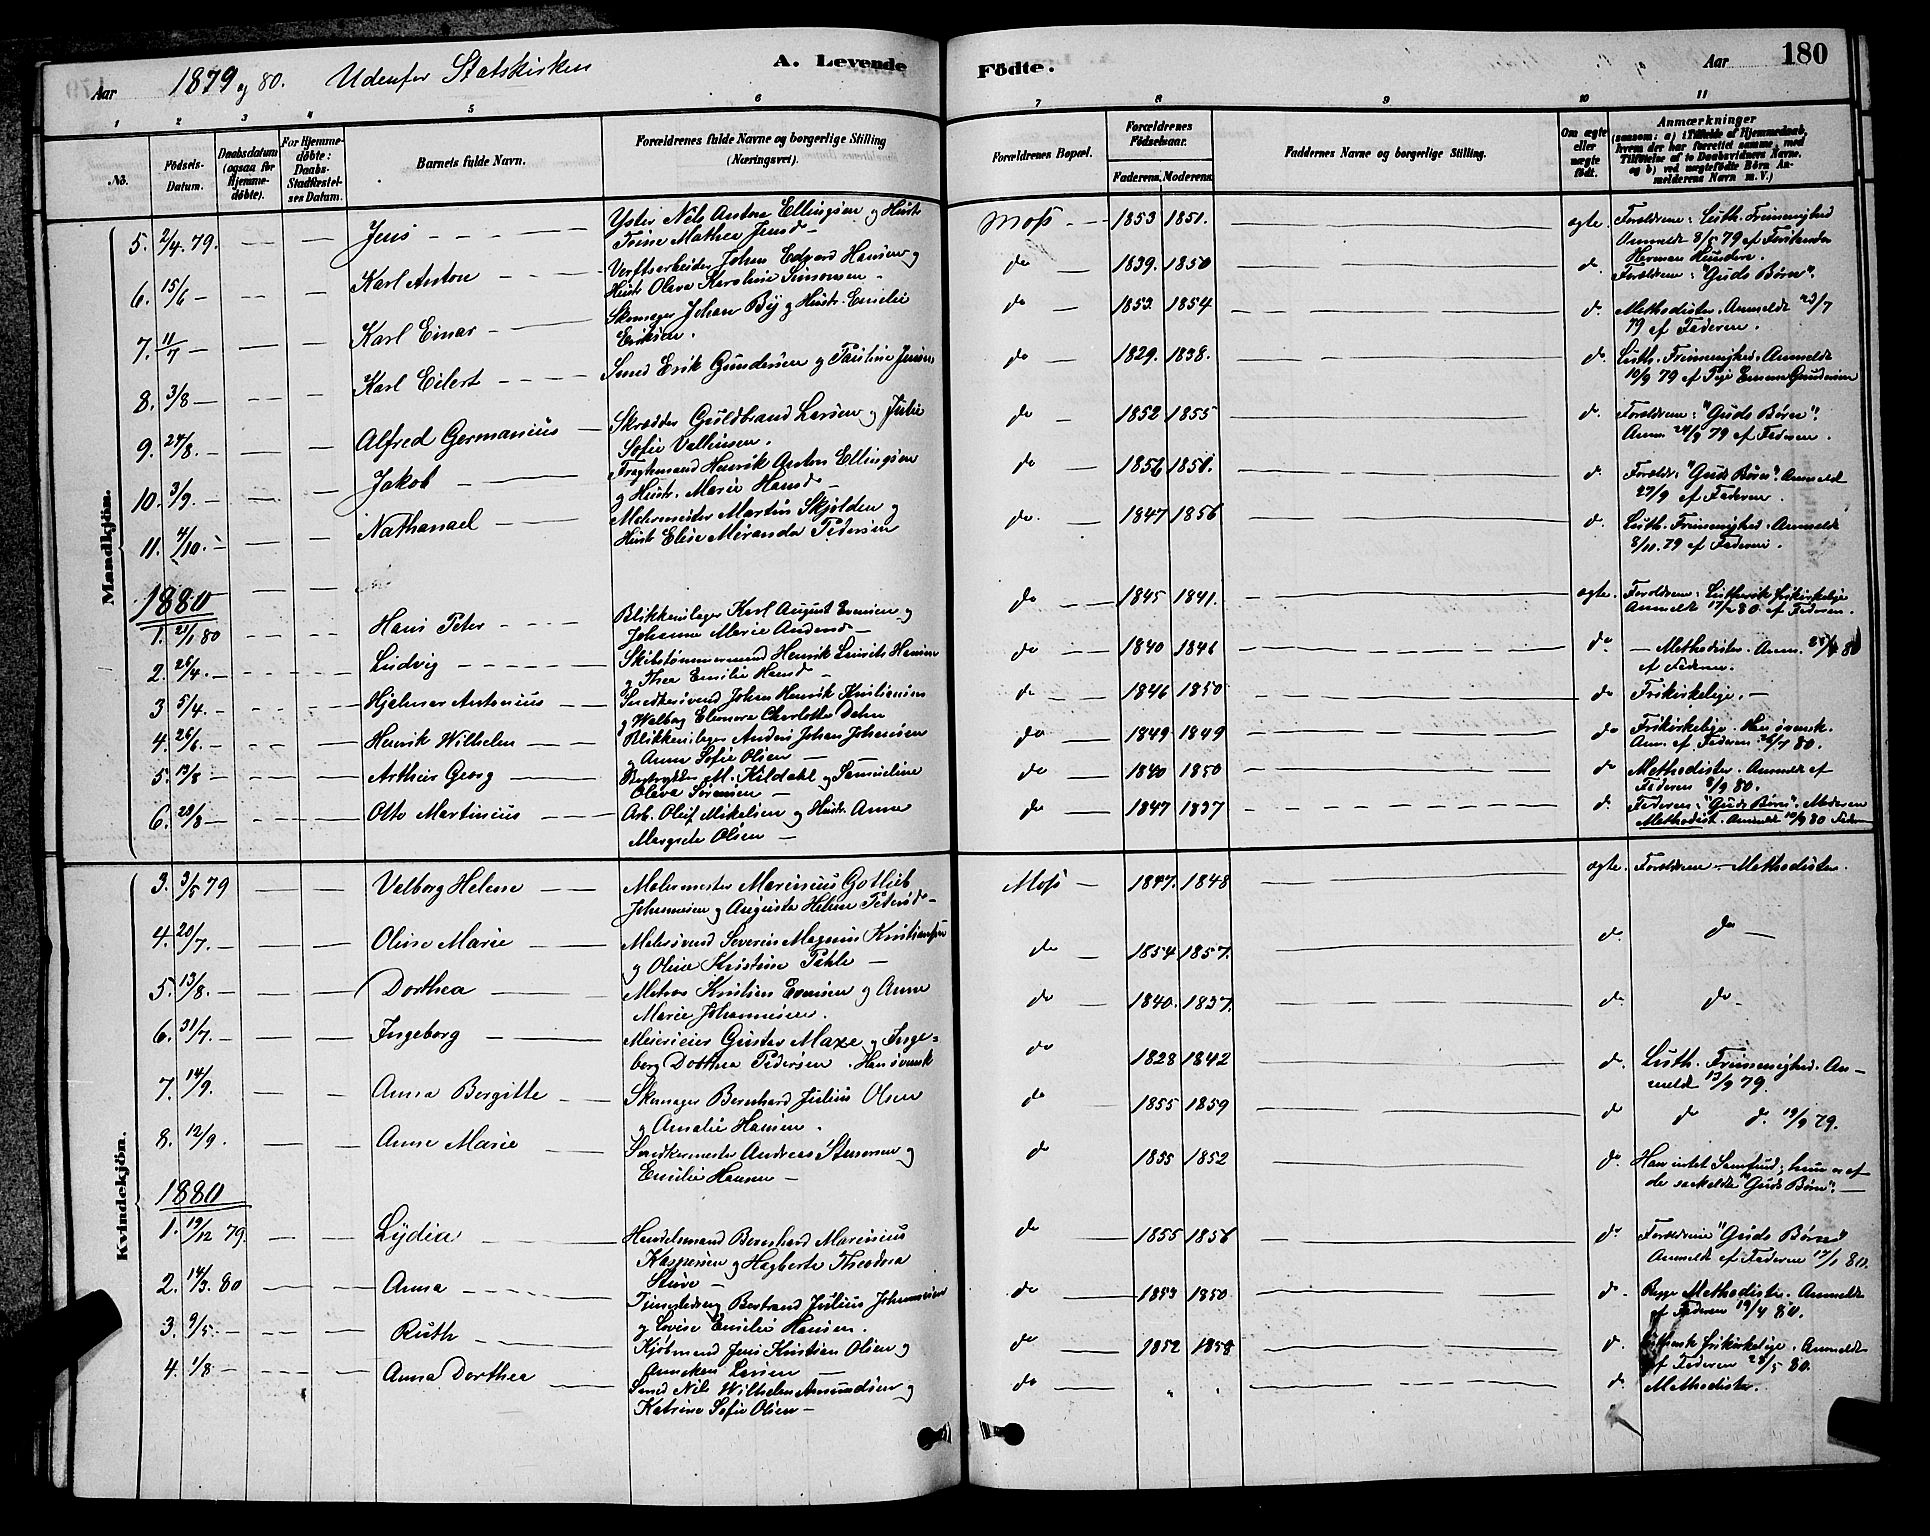 Aar 1879 og 80. Udenfor Statskirken A. Levende Födte. Aar 180
1 2 3 4 5 6 7 8 9 10 11
No. Födsels-Datum. Daabsdatum (ogsaa for Hjemmedöbte). For Hjemmedöbte: Daabs-Stadfæstelses Datum. Barnets fulde Navn. Forældrenes fulde Navne og borgerlige Stilling (Næringsvei). Forældrenes Bopæl. Forældrenes Födselsaar. Faderens. Moderens. Faddernes Navne og borgerlige Stilling. Om ægte eller uægte födt. Anmærkninger
Mandkjön.
5. 2/4 79. Jens Nils Anton Ellingsen og Hustr Moss 1853 1851. ægte. Forældrene: Luth. Frimenighed
Trine Mathea Jensd Anmeldt 8/5 79 af Forstander
6. 15/6 Karl Anton Verftsarbeider Johan Edvard Hansen og do 1839. 1850 d. Herman
Hustr Olava Karoline Simonsen Forældrene: "Guds Børn".
7. 11/7 Karl Einar Skomager Johan By og Hustr. Emilie do 1853. 1854 d. Methodister. Anmeldt 23/7
Eriksen. 79 af Faderen.
8. 3/8 Karl Eilert Smed Erik Gundersen og Pauline Jensen do 1829. 1838. d. Luth. Frimenighed. Anmeldt
10/9 79 af Emma Gundersen
9. 24/8. Alfred Germanius Skrædder Guldbrand Larsen og Julie do 1852 1855 d. Forældrene: "Guds Børn".
Sofie Anm. 24/9 79 af Faderen.
10. 3/9. Jakob Henrik Anton Ellingsen do 1856 1851. d. Forældr: "Guds Børn". Anmeldt
og Hustr. Marie Hansd 27/9 af Faderen.
11. 4/10. Nathanael Malermester Martin Skjolden og do. 1847 1856 d. Luth. Frimenighed. Anmeldt
Hustr Elise Miranda Pedersen 8/11. 79 af Faderen.
1880
1. 21/1 80 Hans Peter Blikkenslager Karl August Evensen og do 1845 1841. ægte. Forældrene: Luthersk frikirkelige
Johanne Marie Andersd Anmeldt 17/2 80. af Faderen.
2. 26/4. Ludvig Skibstømmermand Henrik Lauritz Hansen do 1840 1846 do Methodister. Anm. 25/4 80
og Thea Emilie Hansd af Faderen.
3 5/4. Hjalmar Antonius Snedkersvend Johan Henrik Kristiansen do 1846 1850 do Frikirkelige.
og Walborg Eleonora Charlotte Dahn
4. 26/6. Henrik Wilhelm Blikkenslager Anders Johan Johansen do 1849 1849 do Frikirkelige. Han svensk.
og Anna Sofie Olsen Anm. af Faderen 26/7 80.
5. 13/8 Arthur Georg Bogtrykker M. Kildahl og Samueline do 1840 1850 do Methodister. Anmeldt af
Olava Sørensen Faderen 8/9 80.
6. 20/8 Otto Martinius Arb. Oluf Mikelsen og Hustr. Anne do 1847 1837 d. Faderen: "Guds Børn". Moderen
Margrete Olsen Methodist. Anmeldt 10/9 80 Faderen
Kvindekjön.
3. 3/5 79 Valborg Helene Malermester Marinius Gotlieb Moss 1847. 1848 ægte. Forældrene Methodister
Johannesen og Augusta Helene Pedersd
4. 20/7. Oline Marie Malersvend Severin Magnus Kristiansen do 1854 1857. d. do
og Oline Kristine Pahle
5. 13/8. Dorthea Matros Kristian Evensen og Anne do 1840. 1837. do do
Marie Johannesen.
6. 31/7. Ingeborg Gustav Maxe og Inge- do 1828 1842 d. Luth. Frimenighed. An-
borg Dorthea Pedersen. Han svensk meldt 13/9 79.
7. 14/9. Anna Bergitte Skomager Bernhard Julius Olsen do 1855 1859 do do d. 19/9 79.
og Amalie Hansen.
8. 12/9. Anne Marie Snedkermester Andreas Stensen og do 1835 1852 d. Han intet Samfund, hun af
Emilie Hansen de saakaldte "Guds Børn".
1880
1. 19/12 79. Lydia Handelsmand Bernhard Marinius do 1855 1856 do Forældrene "Guds Børn"
Kaspersen og Hagberta Theodora Anmeldt af Faderen 17/1 80.
2. 14/3. 80 Anna Bertrand Julius Johannesen do 1853 1850. d. Begge Methodister. Anmeldt
og Lovise Emilie Hansen. af Faderen 19/4 80.
3. 9/5. Ruth Kjøbmand Jens Kristian Olsen og do 1852 1858 d. Luthersk frikirkelige. Anmeldt
Anneken Larsen af Faderen 28/5 80.
4. 1/8 Anna Dorthea Smed Nils Wilhelm Amundsen og do " " d. Methodister.
Katrine Sofie Olsen